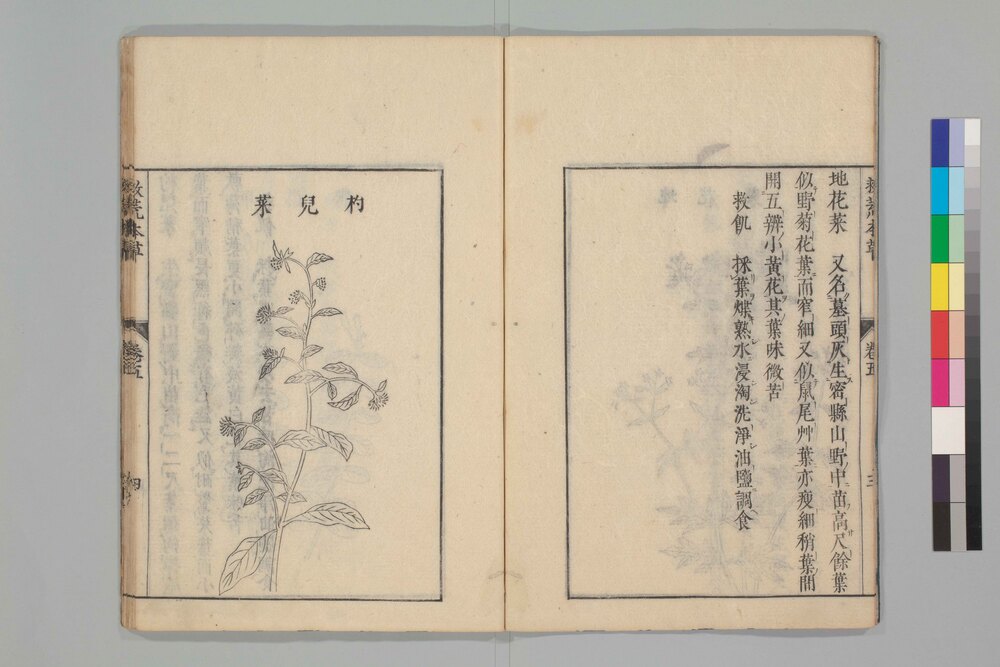 救荒本草 卷五 三
地花菜 又名墓頭灰生密縣山野中苗高尺餘葉
似野菊花葉而窄細又似鼠尾艸葉亦瘦細稍葉間
開五瓣小黃花其葉味微苦
救飢 採葉煠熟水浸淘洗淨油鹽調食
杓兒菜
救荒本草 卷五 四